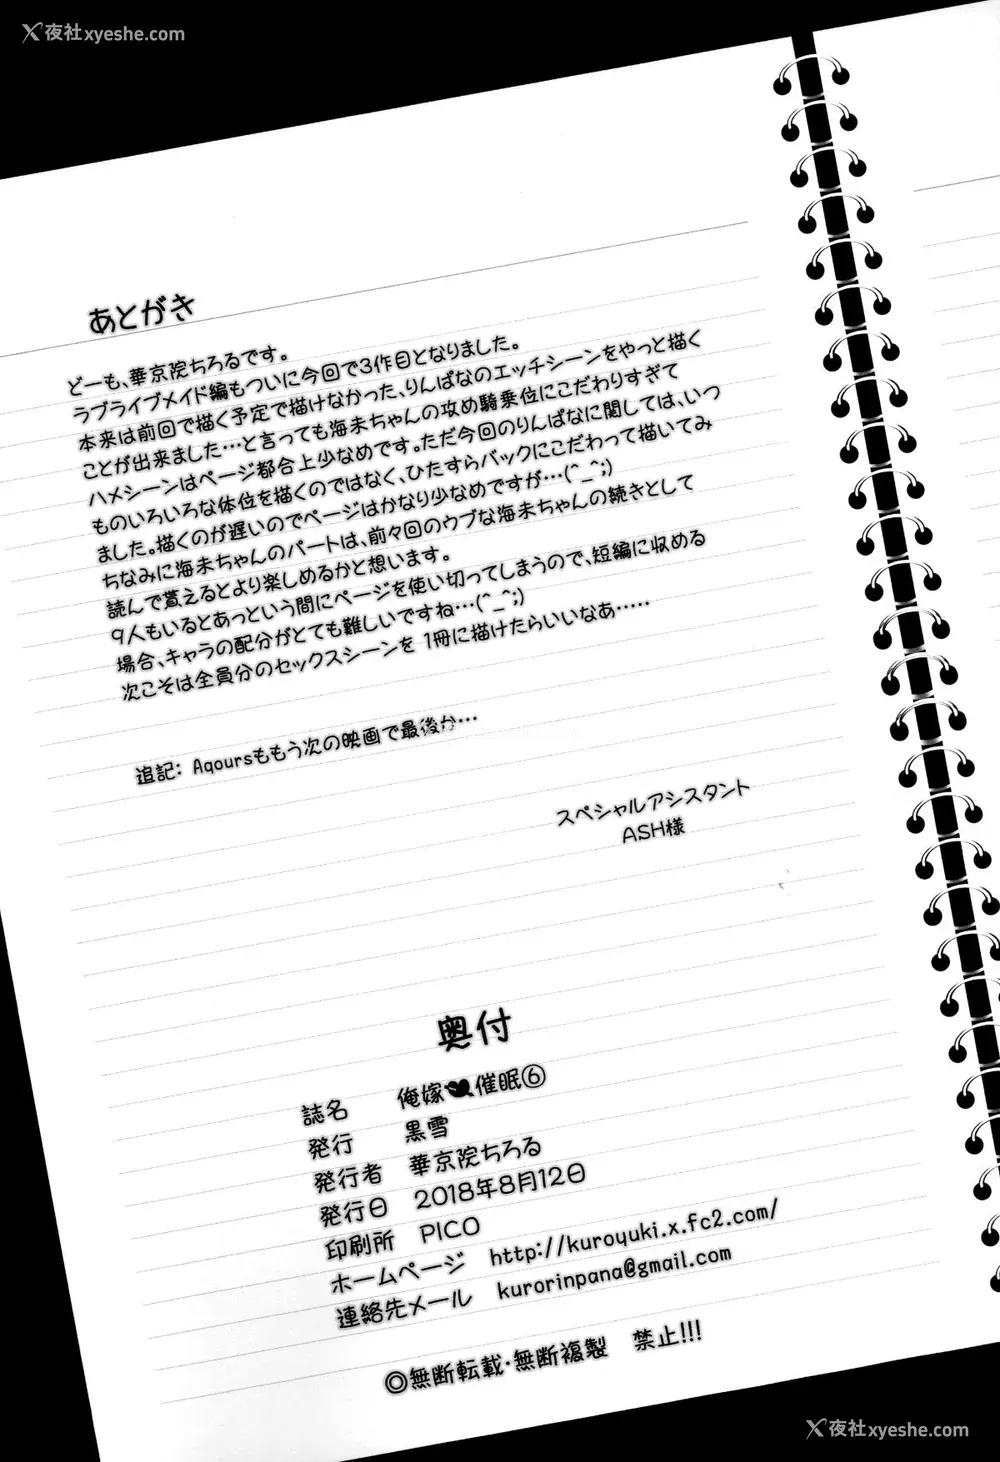 夜社xyeshe.com
あとがき
どーも、華京院ちろるです。
ラブライブメイド編もついに今回で3作目となりました。
本来は前回で描く予定で描けなかった、りんぱなのエッチシーンをやっと描く
ことが出来ました…と言っても海未ちゃんの攻め騎乗位にこだわりすぎて
ハメシーンはページ都合上少なめです。ただ今回のりんぱなに関しては、いつ
ものいろいろな体位を描くのではなく、ひたすらバックにこだわって描いてみ
ました。描くのが遅いのでページはかなり少なめですが…(^_^;)
ちなみに海未ちゃんのパートは、前々回のウブな海未ちゃんの続きとして
読んで貰えるとより楽しめるかと想います。
9人もいるとあっという間にページを使い切ってしまうので、短編に収める
場合、キャラの配分がとても難しいですね…(^_^;)
次こそは全員分のセックスシーンを 1冊に描けたらいいなあ……
追記: Aqoursももう次の映画で最後か…
スペシャルアシスタント
ASH様
奥付
誌名 俺嫁催眠⑥
発行 黒雪
発行者 華京院ちろる
発行日 2018年8月12日
印刷所 PICO
ホームページ http://kuroyuki.x.fc2.com/
連絡先メール kurorinpana@gmail.com
◎無断転載・無断複製 禁止!!!
夜社xyeshe.com